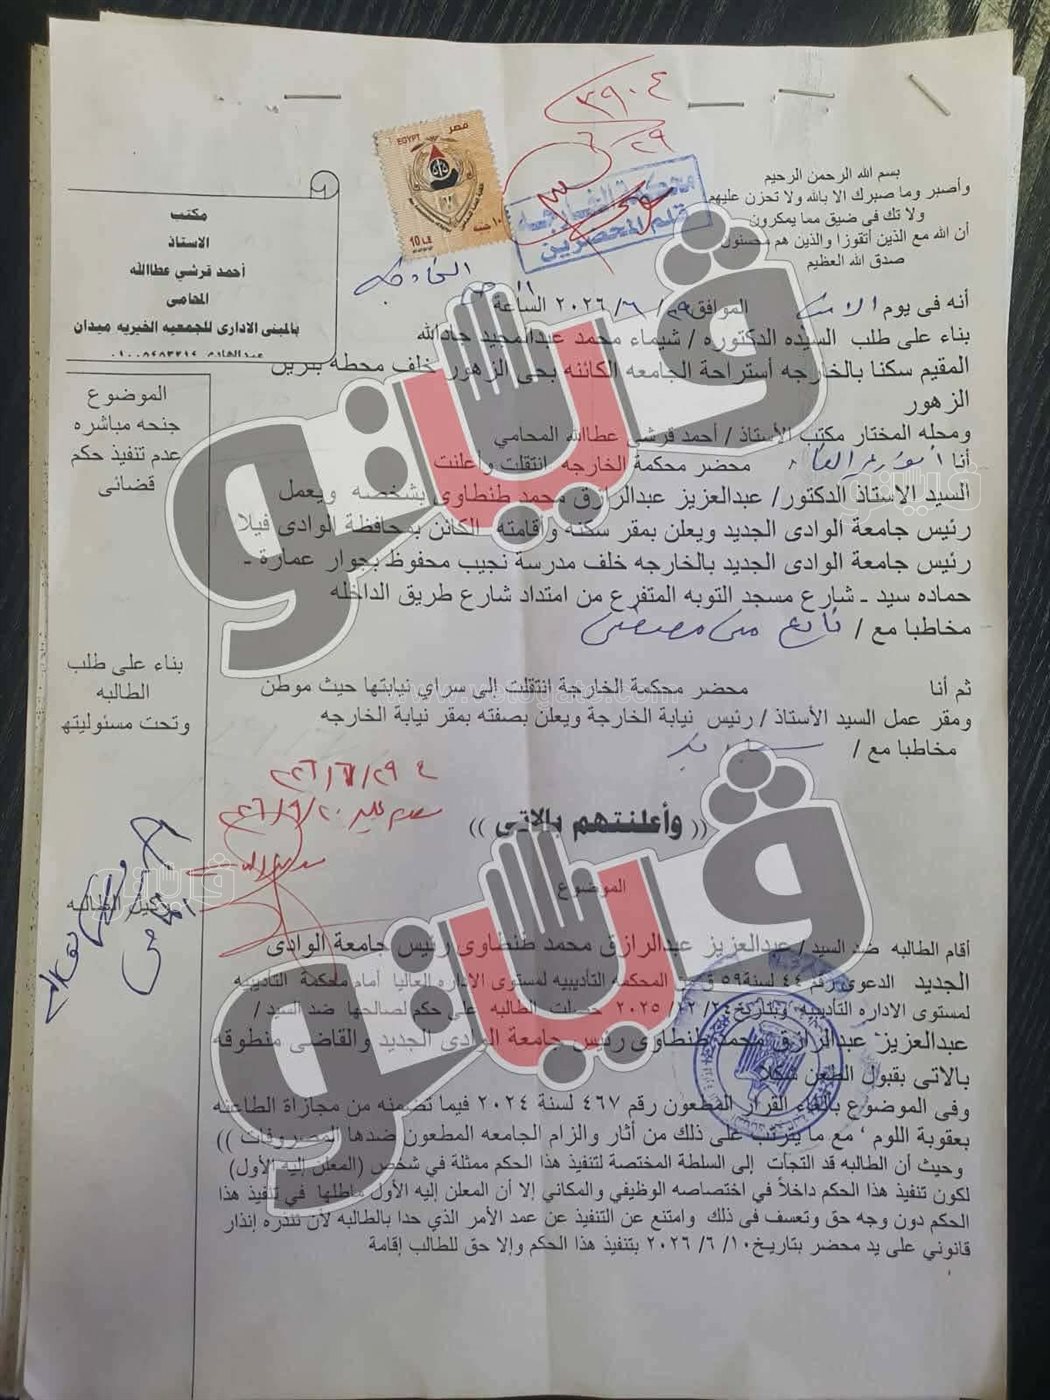 ٣٩٠٤
٦/٢٩
مصر
EGYPT
محكمة الخارجة
قلم المحضرين
بسم الله الرحمن الرحيم
وأصبر وما صبرك الا بالله ولا تحزن عليهم
ولا تك في ضيق مما يمكرون
أن الله مع الذين أتقوزا والذين هم محسنون
صدق الله العظيم
مكتب
الاستاذ
أحمد قرشي عطاالله
المحامى
بالمبنى الادارى للجمعيه الخيريه ميدان
الموضوع
جنحه مباشره
عدم تنفيذ حكم
قضائى
بناء على طلب
الطالبه
وتحت مسئوليتها
وكيل الطالبه
أنه فى يوم الموافق ٢٩/ ٦/ ٢٠٢٦ الساعة
بناء على طلب السيده الدكتوره / شيماء محمد عبدالمجيد جادالله
المقيم سكنا بالخارجه أستراحة الجامعه الكائنه بحى الزهور خلف محطه بنزين
الزهور
ومحله المختار مكتب الأستاذ / أحمد قرشى عطاالله المحامي
أنا محضر محكمة الخارجه انتقلت وأعلنت
السيد الاستاذ الدكتور/ عبدالعزيز عبدالرازق محمد طنطاوى بشخصه ويعمل
رئيس جامعة الوادى الجديد ويعلن بمقر سكنه وأقامته الكائن بمحافظة الوادى فيلا
رئيس جامعة الوادى الجديد بالخارجه خلف مدرسة نجيب محفوظ بجوار عمارة ـ
حماده سيد ـ شارع مسجد التوبه المتفرع من امتداد شارع طريق الداخله
مخاطبا مع /
ثم أنا محضر محكمة الخارجة انتقلت إلى سراي نيابتها حيث موطن
ومقر عمل السيد الأستاذ / رئيس نيابة الخارجة ويعلن بصفته بمقر نيابة الخارجه
مخاطبا مع /
(( وأعلنتهم بالاتى ))
الموضوع
أقام الطالبه ضد السيد / عبدالعزيز عبدالرازق محمد طنطاوى رئيس جامعة الوادى
الجديد الدعوى رقم ٤٤ لسنة ٥٩ ق المحكمه التأديبيه لمستوى الاداره العاليا أمام محكمة التاديبيه
لمستوى الاداره التأديبيه وبتاريخ ٢٠٢٥ حصلت الطالبه على حكم لصالحها ضد السيد /
عبدالعزيز عبدالرازق محمد طنطاوى رئيس جامعة الوادى الجديد والقاضى منطوقه
بالاتى بقبول الطعن شكلا
وفى الموضوع بالغاء القرار المطعون رقم ٤٦٧ لسنة ٢٠٢٤ فيما تضمنه من مجازاة الطاعنه
بعقوبة اللوم ‘ مع ما يترتب على ذلك من أثار والزام الجامعه المطعون ضدها المصروفات ))
وحيث أن الطالبه قد التجأت إلى السلطة المختصة لتنفيذ هذا الحكم ممثلة في شخص (المعلن إليه الأول)
لكون تنفيذ هذا الحكم داخلاً في اختصاصه الوظيفي والمكاني إلا أن المعلن إليه الأول ماطلها في تنفيذ هذا
الحكم دون وجه حق وتعسف فى ذلك وامتنع عن التنفيذ عن عمد الأمر الذي حدا بالطالبه لأن تنذره إنذار
قانوني على يد محضر بتاريخ ١٠/ ٦/ ٢٠٢٦ بتنفيذ هذا الحكم وإلا حق للطالب إقامة
فيتو
فيتو
www.vetogate.com